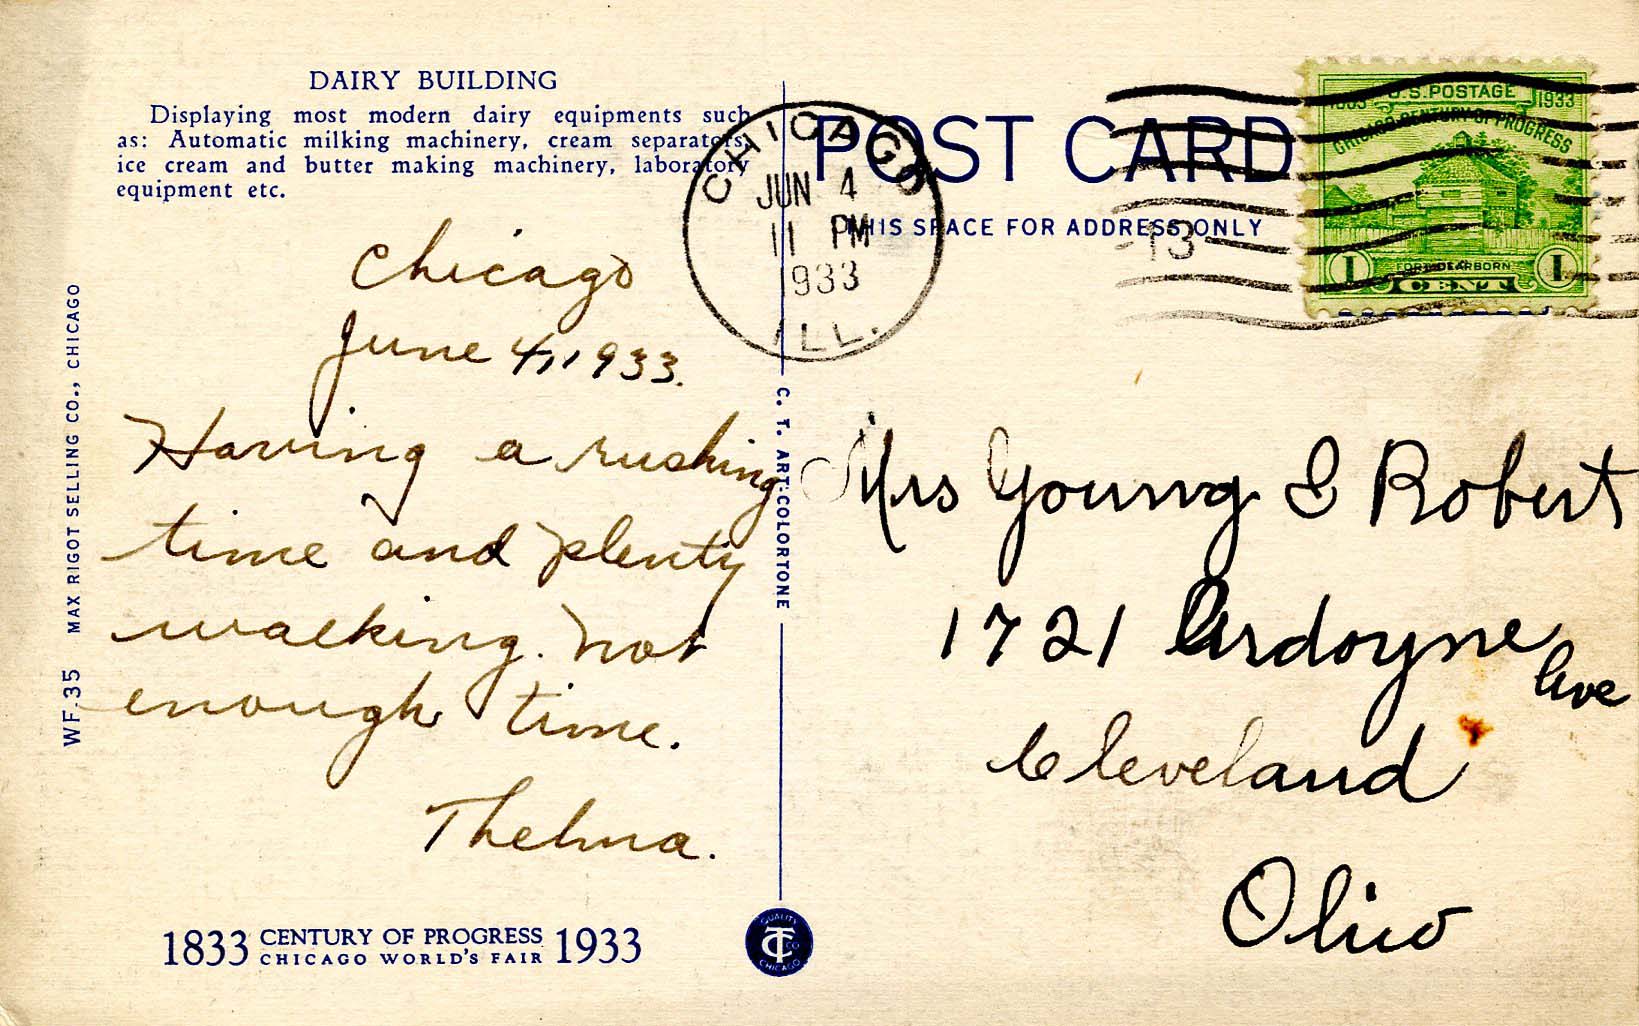 DAIRY BUILDING
Displaying most modern dairy equipments such
as: Automatic milking machinery, cream separators,
ice cream and butter making machinery, laboratory
equipment etc.
Chicago
June 4, 1933.
Having a rushing
time and plenty
walking. Not
enough time.
Thelma.
1833 CENTURY OF PROGRESS 1933
CHICAGO WORLD'S FAIR
WF.35 MAX RIGOT SELLING CO., CHICAGO
C. T. ART-COLORTONE
QUALITY
CT CO
CHICAGO
CHICAGO
JUN 4
11 PM
1933
ILL.
POST CARD
THIS SPACE FOR ADDRESS ONLY
13
U.S. POSTAGE
1933
CHICAGO CENTURY OF PROGRESS
FORT DEARBORN
1 CENT 1
Mrs Young E Robert
1721 Ardoyne
Ave
Cleveland
Ohio